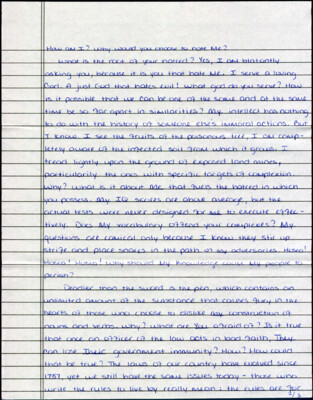 How am I? Why would you choose to hate Me?
What is the root of your hatred? Yes, I am blatantly
asking you, because it is you that hate me. I serve a loving
God. A just God that hates evil! What god do you serve? How
is it possible that we can be one of the same and at the same
time be so far apart in similarities? My intellect has nothing
to do with the history of someone else's immoral actions. But
I know. I see the fruits of the poisonous tree, I am comp-
letely aware of the infected soil from which it grows. I
tread lightly upon the ground of exposed land mines,
particularily the ones with specific targets of complexion.
Why? What is it about Me that fuels the hatred in which
you possess. My IQ scores are above average, but the
actual tests were never designed for me to execute effec-
tively. Does My vocabulary offend your complexes? My
questions are comical only because I know they stir up
strife and place snares in the path of my adversaries.
Why should My knowledge cause My people to
perish?
Deadlier than the sword is the pen, which contains an
unlimited amount of the substance that causes fury in the
hearts of those who choose to construction of
nouns and verbs. Why? What are You afraid of? Is it true
that once an officer of the law acts in bad faith, They
can lose Their government immunity? How? How could
that be true? The laws of our country have evolved since
1787, yet we still have the same issues today - those who
write the rules to live by really mean: the rules are for